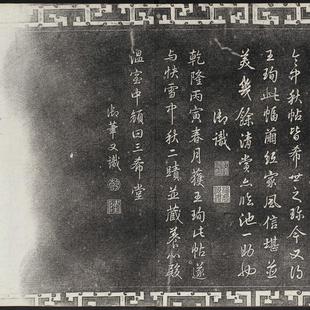 令中秋帖皆希世之珍今又得
王珣此幅繭紙家風信堪並
美幾餘清賞亦臨池一助也
御識
乾隆丙寅春月獲王珣此帖遂
與快雪中秋二蹟並藏養心殿
溫室中顏曰三希堂
御筆又識